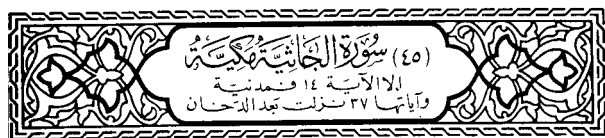 (٤٥) سُورَةُ الجَاثِيَةِ مَكِيَّةٌ
إلا الآية ١٤ فمدنية
وآياتها ٣٧ نزلت بعد الدخان